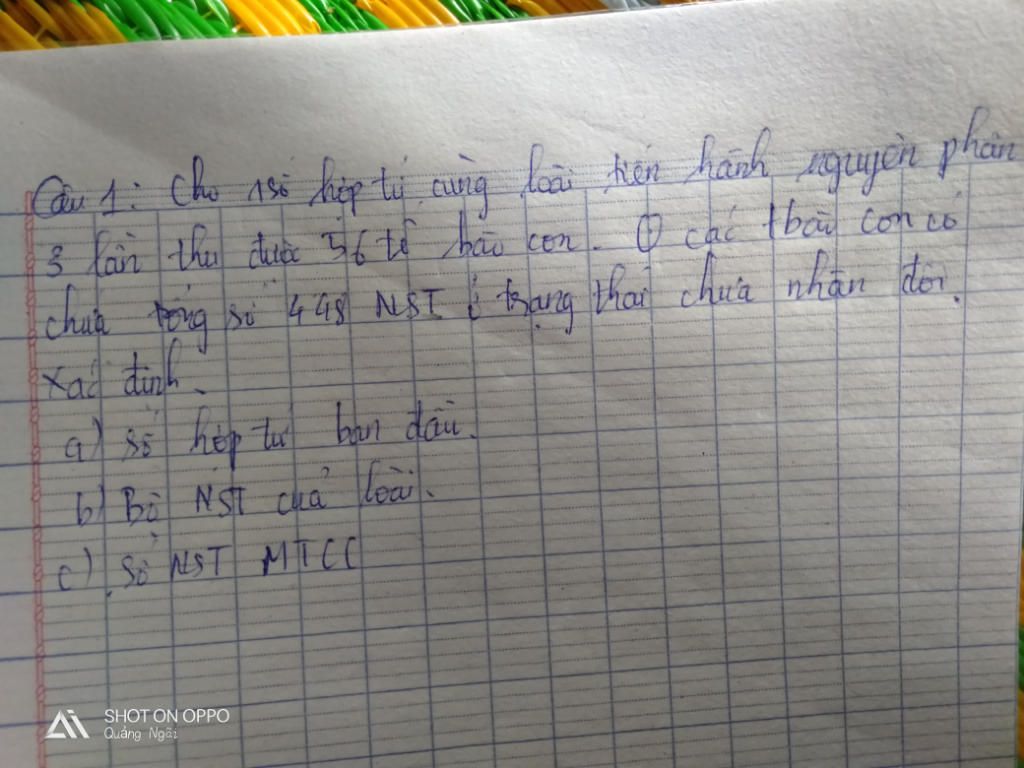 Câu 1: Cho 1 số hợp tử cùng loài tiến hành nguyên phân
3 lần thu được 56 tế bào con. Ở các tbào con có
chứa tổng số 448 NST ở trạng thái chưa nhân đôi.
Xác định.
a) số hợp tử ban đầu.
b) Bộ NST của loài.
c) số NST MTCC
SHOT ON OPPO
Quảng Ngãi